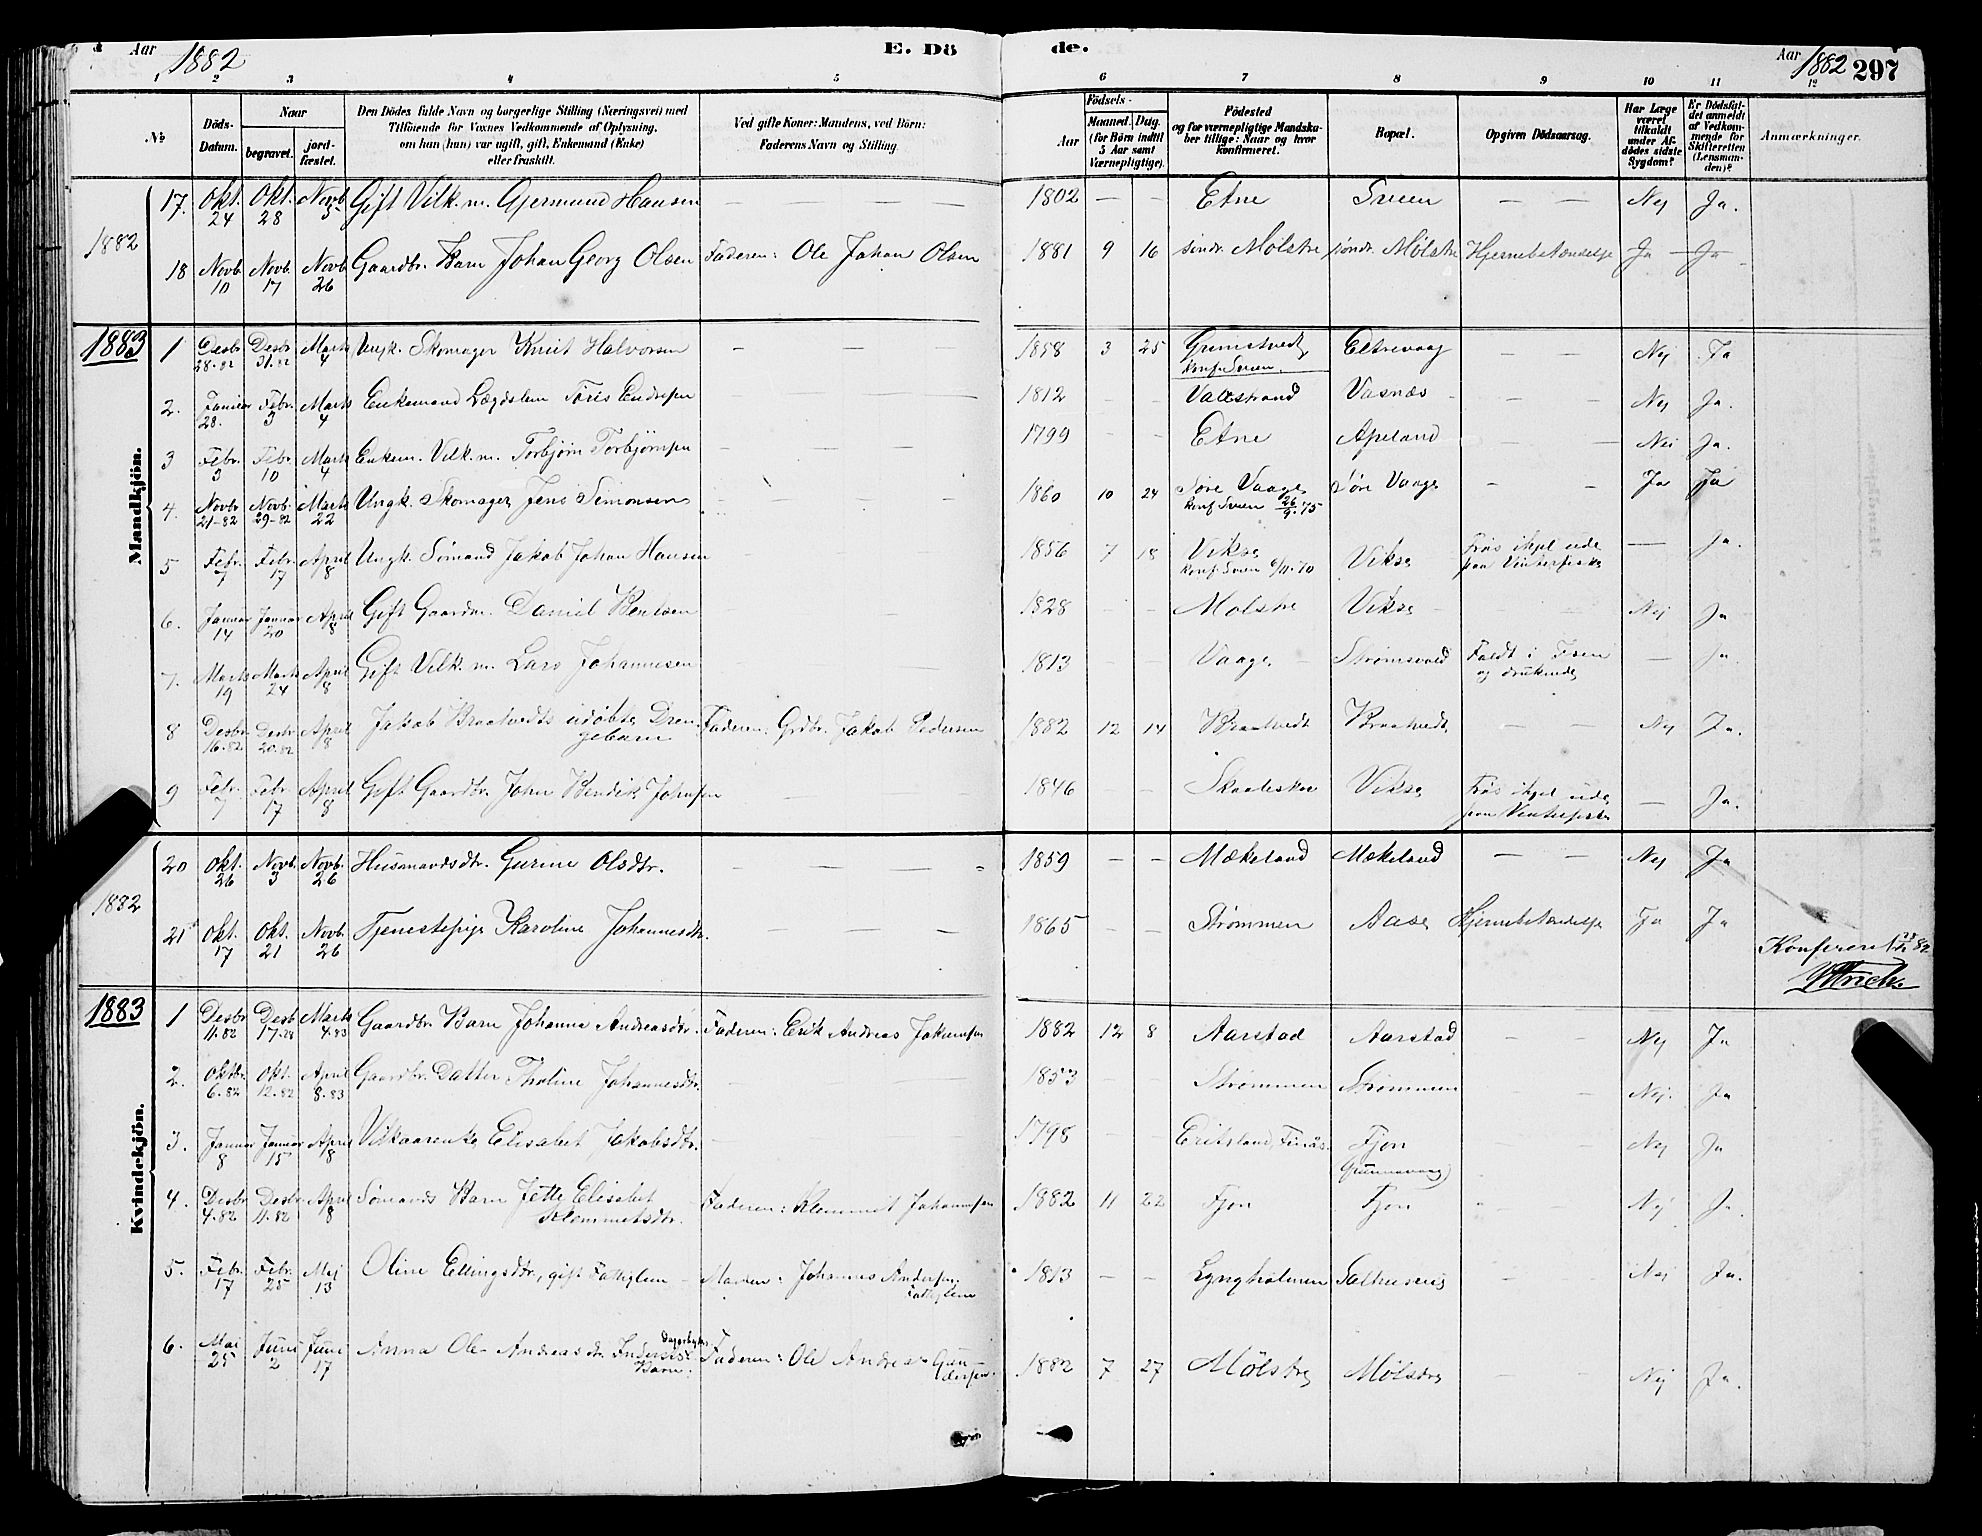 Aar 1882 E. Dö de. Aar 1882 297
1 2 3 4 5 6 7 8 9 10 11 12
No. Döds-Datum. Naar begravet. jord-fæstet. Den Dödes fulde Navn og borgerlige Stilling (Næringsvei) med Tilföiende for Voxnes Vedkommende af Oplysning, om han (hun) var ugift, gift, Enkemand (Enke) eller fraskilt. Ved gifte Koner: Mandens, ved Börn: Faderens Navn og Stilling. Födsels- Aar Maaned. Dag. (for Börn indtil 5 Aar samt Værnepligtige). Födested og for værnepligtige Mandskaber tillige: Naar og hvor konfirmeret. Bopæl. Opgiven Dödsaarsag. Har Læge været tilkaldt under Afdödes sidste Sygdom? Er Dödsfaldet anmeldt af Vedkommende for Skifteretten (Lensmanden)? Anmærkninger.
Mandkjön.
1882
17. Okt. 24 Okt. 28 Novb. 5 Gift Vilk. m. Gjermund Hansen — — — — 1802 — — Etne Sveen — — Nej Ja.
18 Novb. 10 Novb. 17 Novb. 26 Gaardbr. Barn Johan Georg Olsen Faderen: Ole Johan Olsen 1881 9 16 søndr. Molstre søndr. Mølstre Hjernebetændelse Ja Ja
1883
1 Desbr. 28-82 Desbr. 31.82 Marts 4 Ungk. Skomager Knut Halvorsen — — — 1858 3 25 Grimstvedt, Konf. Sveen. Eltrevaag — — Nej Ja
2. Januar 28. Febr. 3 Marts 4 Enkemand Lægdslem Tøris Endresen 1812 — — Valestrand Vasnæs — — Nej Ja.
3 Febr. 3 Febr. 10 Marts 4 Enkem. Vilk. m. Torbjørn Torbjørnsen — — — 1799 — — Etne Apeland — — Nei Ja.
4. Novbr 21-82 Novb. 29-82 Marts 22 Ungk. Skomager Jens Simonsen — — — 1860 10 24 Søre Vaage Konf Sveen 26/9.75 Søre Vaage — — Ja Ja
5 Febr. 7 Febr. 17 April 8 Ungk. Sømand Jakob Johan Hansen — — 1856 7 18 Vikse Konf. Sveen 6/11.70 Vikse Frøs ihjel ude paa Vinterfiske — Ja.
6. Januar 14 Januar 20 April 8 Gift Gaardm. Daniel Bentsen — — 1828 — — Molstre Vikse — Nej Ja
7. Marts 19 Marts 24 April 8 Gift Vilk. m. Lars Johannesen — — 1813 — — Vaage — Strømsvold Faldt i Søen og druknede — Ja.
8 Desbr. 16.82 Desbr. 20.82 April 8 Jakob Braatvedts udøbte Drengebarn Faderen: Grdbr. Jakob Pedersen 1882 12 14 Braatvedt Braatvedt — — Nej Ja.
9 Febr. 7 Febr. 17 April 8 Gift Gaardbr. John Bendik Johnsen — — 1846 — Vikse Frøs ihjel ude paa Vinterfiske — Ja.
Kvindekjön.
1882
20 Okt. 26 Novb. 3 Novb. 26 Husmandsdtr. Gurine Olsdtr. — — — 1859 — — Mækeland Mækeland — — Nej Ja
21 Okt. 17 Okt. 21 Novb. 26 Tjenestepige Karoline Johannesdtr. — — — 1865 — — Strømmen Aase Hjernebetændelse Ja Ja
Konfereret 82
1883
1 Desbr 11.82 Desb 17. Marts 4.83 Gaardbr. Barn Johanna Andreasdtr. Faderen: Erik Andreas Jakobsen 1882 12 8 Aarstad Aarstad — — Nej Ja
2. Oktbr. 6.82 Okt. 12.82 April 8.83 Gaardbr. Datter Tholine Johannesdtr. — — 1853 — Strømmen Strømmen — — Nej. Ja
3. Januar 8 Januar 15 April 8 Vilkaarenke Elisabet Jakobsdtr. — 1798 — — Eritsland, Finaas. Fjon (Gunnavaag) — — Nej Ja
4. Desbr 4.82 Desbr. 11.82 April 8 Sømands Barn Jette Elisabet Klemmetsdtr. Faderen: Klemmet Johannesen 1882 11 22 Fjon Fjon — — Nej Ja.
5. Febr. 17 Febr. 25 Mej 13 Oline Ellingsdtr., gift Fattiglem — Manden: Johannes Andersen, Fattiglem 1813 — — Lyngholmen Salhusvig — — Nei Ja.
6. Mai 25 Juni 2 Juni 17 Anna Ole Andreasdtr. Barn. Faderen: Ole Andreas Gundersen. 1882 7 27 Mølstre Mølstre — — Nej Ja.